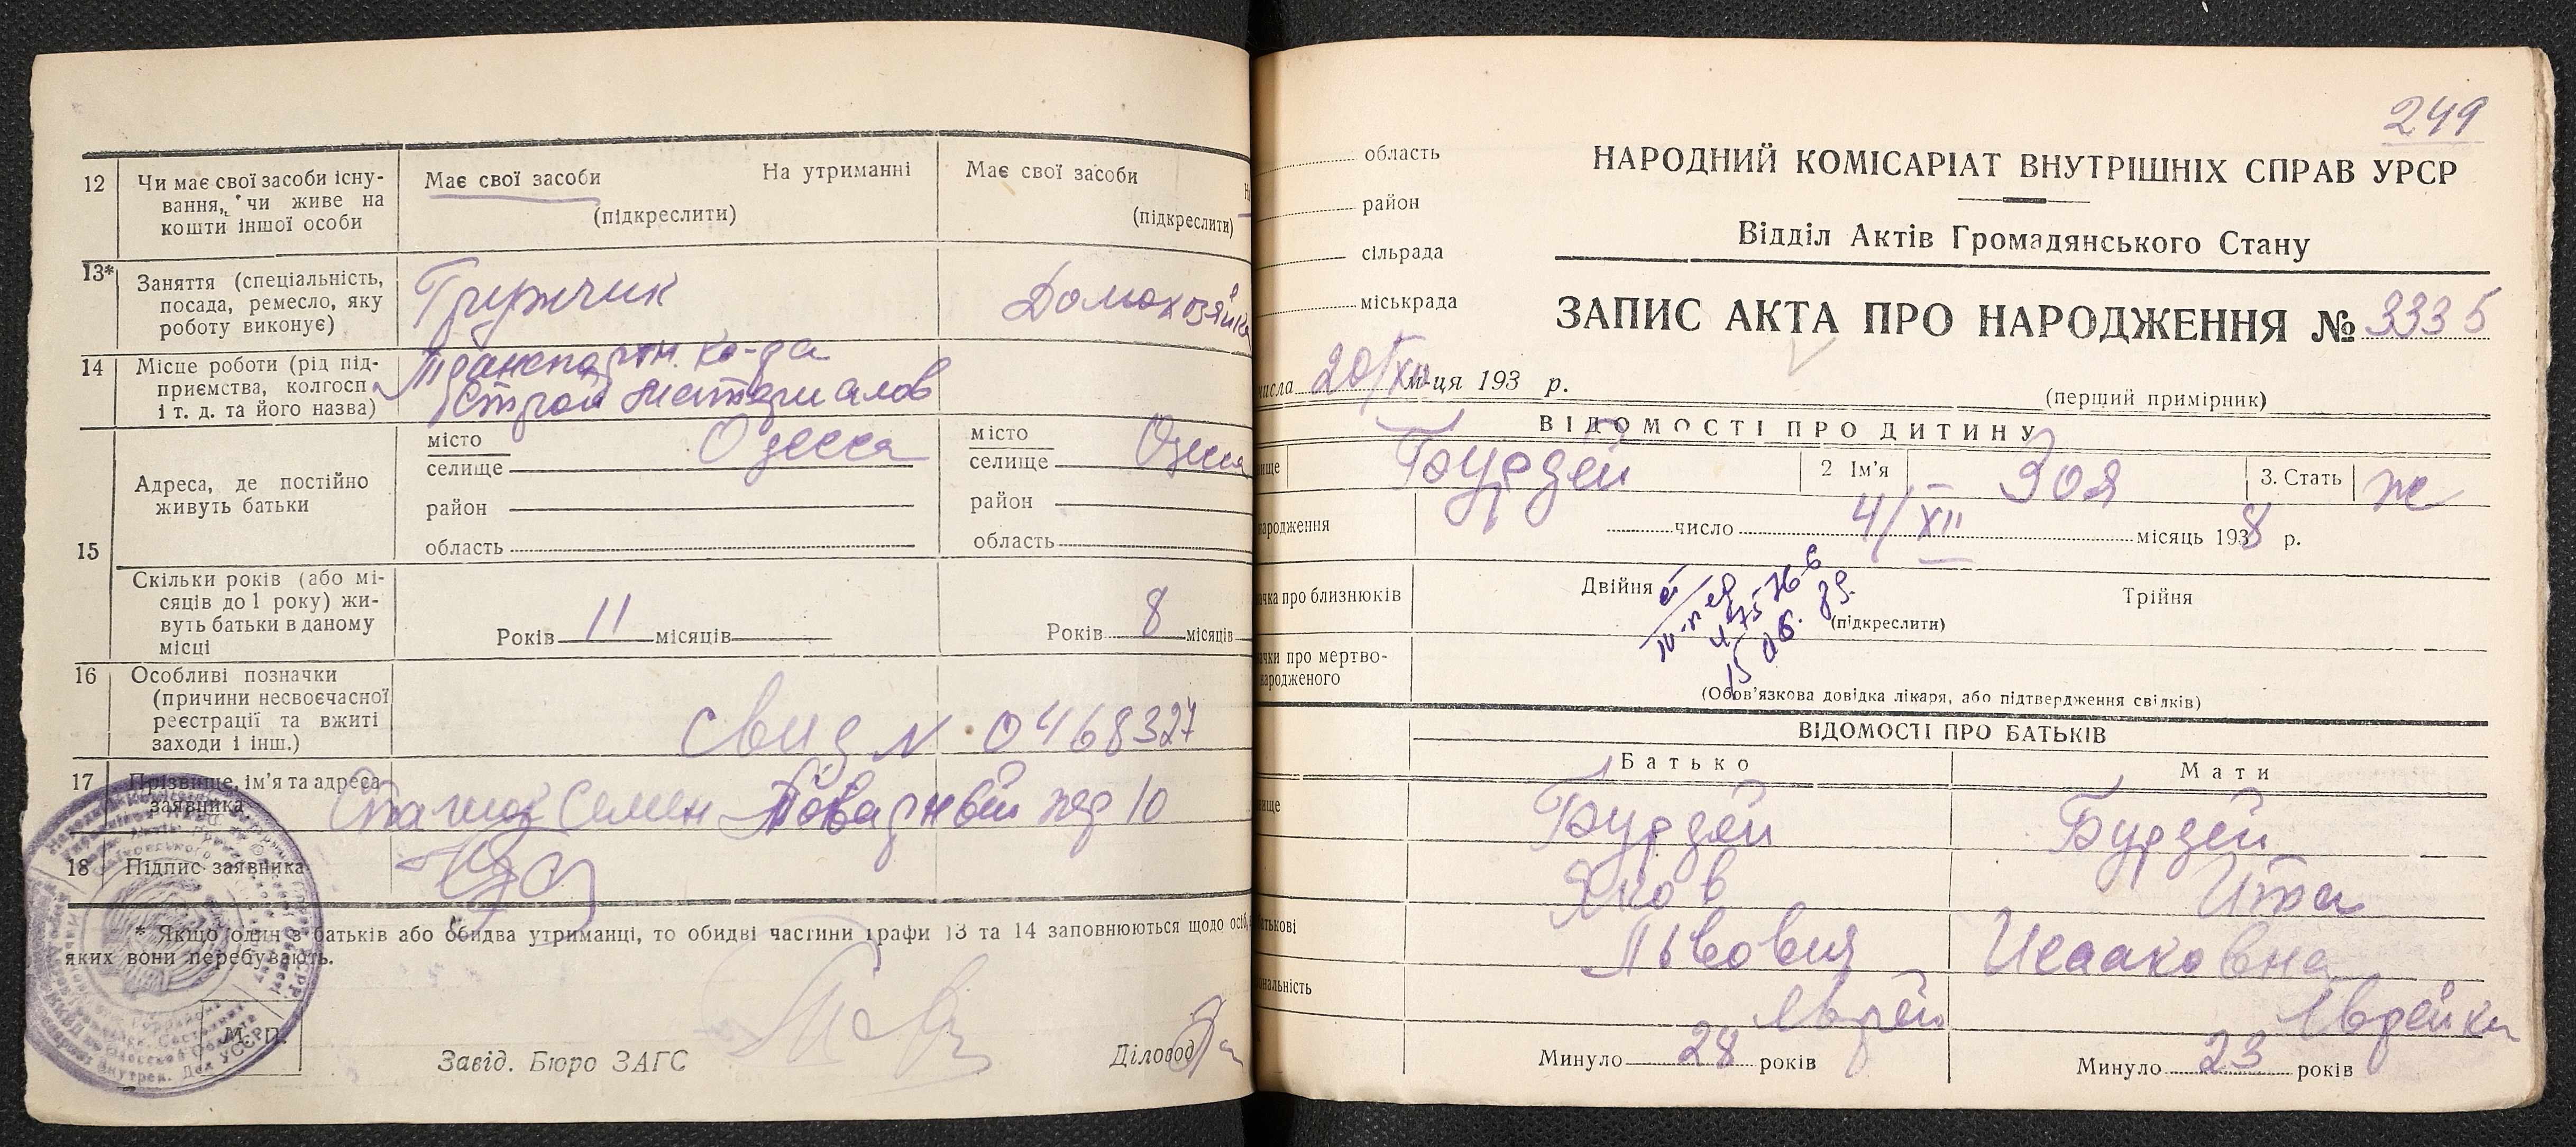 12
Чи має свої засоби існу-
вання, чи живе на
кошти іншої особи
Має свої засоби
На утриманні
(підкреслити)
Має свої засоби
(підкреслити)
13*
Заняття (спеціальність,
посада, ремесло, яку
роботу виконує)
Грузчик
Домохозяйка
14
Місце роботи (рід під-
приємства, колгосп
і т. д. та його назва)
Транспортн. ко-да
Строй материалов
15
Адреса, де постійно
живуть батьки
місто
селище
Одесса
район
область
місто
селище
Одесса
район
область
Скільки років (або мі-
сяців до 1 року) жи-
вуть батьки в даному
місці
Років 11 місяців
Років 8 місяців
16
Особливі позначки
(причини несвоєчасної
реєстрації та вжиті
заходи і інш.)
свид N 0468327
17
Прізвище, ім'я та адреса
заявника
Семен Товарный пер 10
18
Підпис заявника
* Якщо один з батьків або обидва утриманці, то обидві частини графи 13 та 14 заповнюються щодо осіб,
яких вони перебувають.
М. П.
Завід. Бюро ЗАГС
Діловод
249
область
район
сільрада
міськрада
НАРОДНИЙ КОМІСАРІАТ ВНУТРІШНІХ СПРАВ УРСР
Відділ Актів Громадянського Стану
ЗАПИС АКТА ПРО НАРОДЖЕННЯ № 3335
числа 20/XII м-ця 193 р.
(перший примірник)
ВІДОМОСТІ ПРО ДИТИНУ
ище
Бурдей
2 Ім'я
Зоя
3. Стать
ж
народження
число 4/XII місяць 1938 р.
ачка про близнюків
Двійня
Трійня
(підкреслити)
ачки про мертво-
народженого
(Обов'язкова довідка лікаря, або підтвердження свідків)
ВІДОМОСТІ ПРО БАТЬКІВ
Батько
Мати
ище
Бурдей
Бурдей
Яков
Ита
батькові
Львович
Исааковна
ональність
Еврей
Еврейка
Минуло 28 років
Минуло 23 років